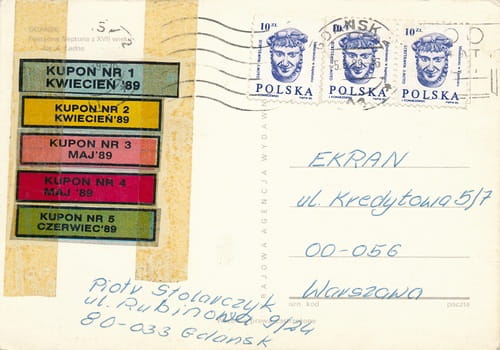 GDAŃSK
Fontanna Neptuna z XVII wieku
KUPON NR 1
KWIECIEŃ '89
KUPON NR 2
KWIECIEŃ'89
KUPON NR 3
MAJ'89
KUPON NR 4
MAJ '89
KUPON NR 5
CZERWIEC'89
10 ZŁ 10 ZŁ 10 ZŁ
GDAŃSK
POLSKA POLSKA POLSKA
KRAJOWA AGENCJA WYDAWN
EKRAN
ul. Kredytowa 5/7
00-056
Warszawa
nrm kod poczta
Piotr Stolarczyk
ul. Rubinowa 9/24
80-033 Gdańsk